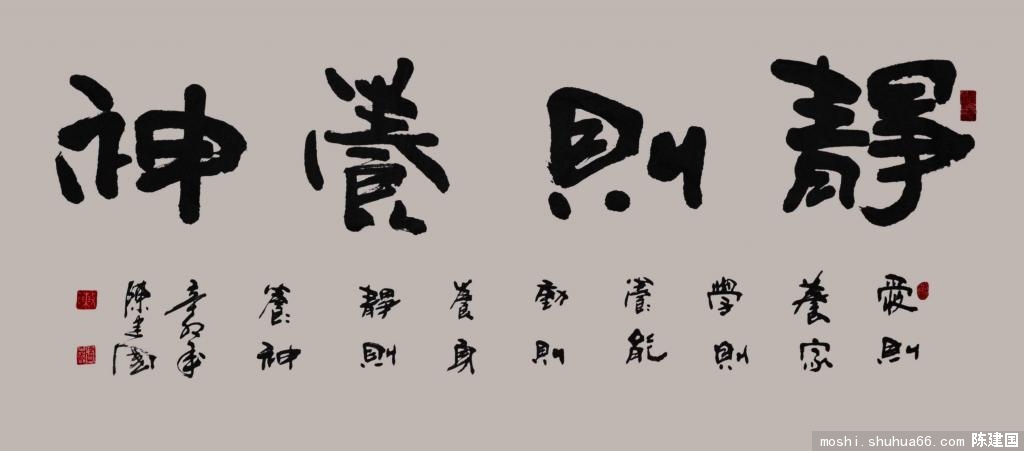 靜則養神
愛則
養家
學則
養能
動則
養身
靜則
養神
辛卯年
陳建國
moshi.shuhua66.com 陈建国